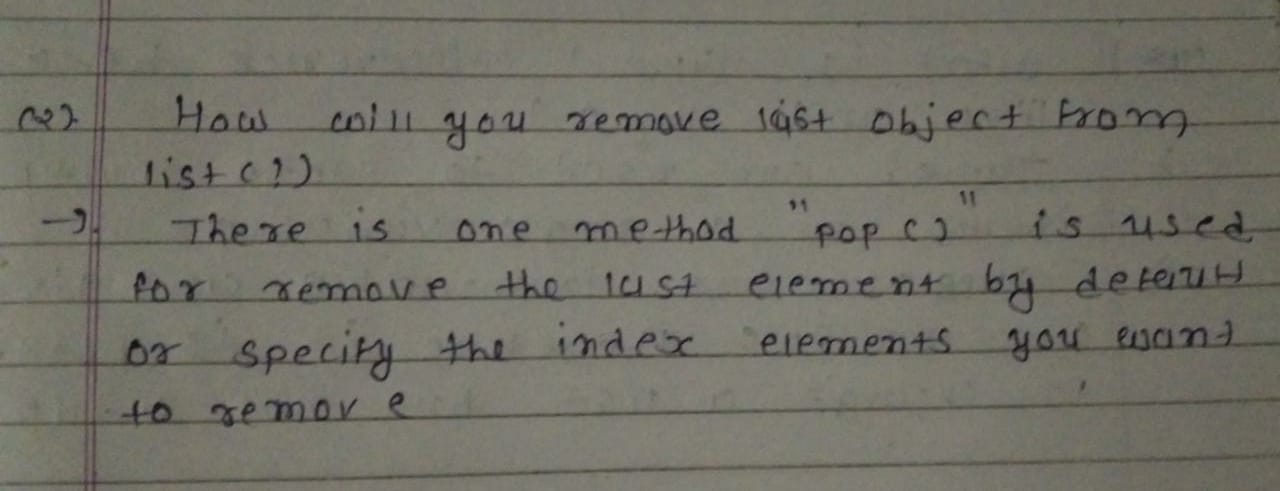 Q2). How will you remove last object from
list(?)
→ There is one method "pop()" is used
for remove the last element by default
or specify the index elements you want
to remove